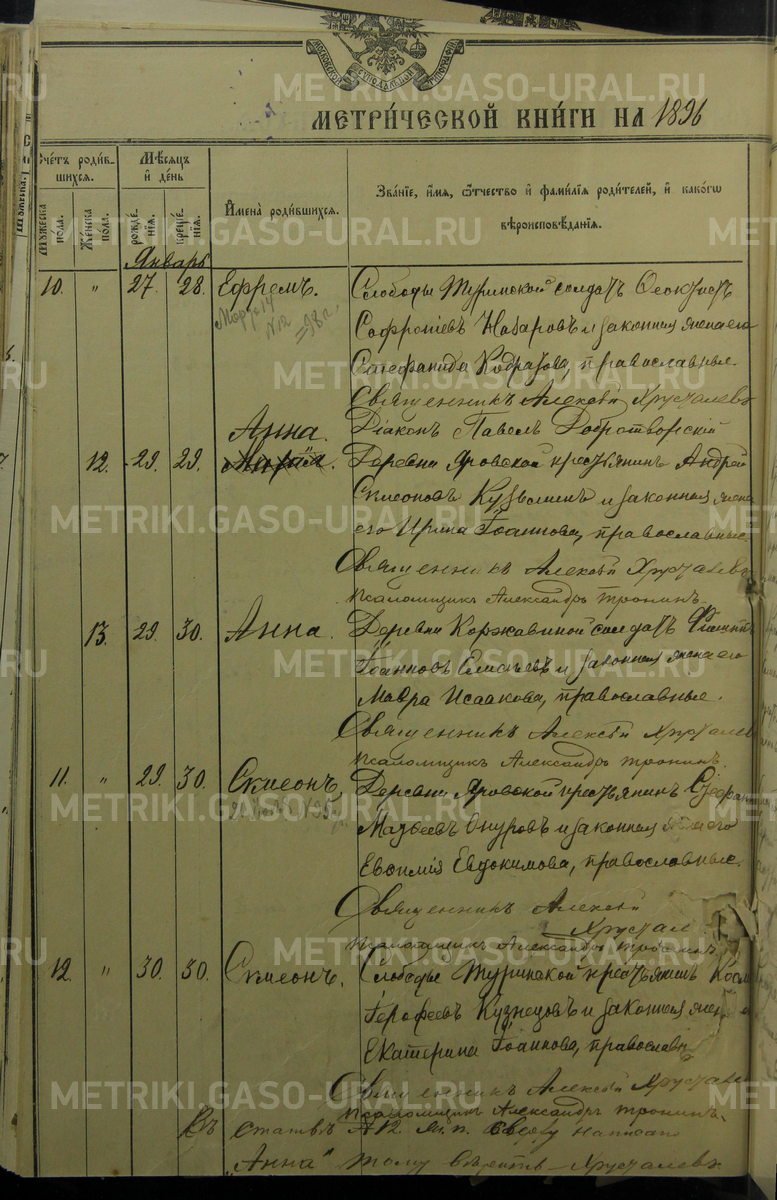 МОСКОВСКОЙ СѴНОДАЛЬНОЙ ТИПОГРАФІИ
МЕТРИ́ЧЕСКОЙ КНИ́ГИ НА 1896
Сче́тъ роди́вшихся.
Мѣсяцъ и́ де́нь
Имена̀ роди́вшихся.
Зва́нїе, и́мя, ѻ́тчество и́ фами́лїѧ роди́телей, и́ како́гѡ вѣроисповѣ́данїѧ.
Мꙋ́жеска по́ла.
Же́нска по́ла.
рожде́нїѧ.
креще́нїѧ.
Январь
10. " 27 28. Ефремъ. Слободы Туринской солдатъ Ѳеоктистъ
Софроніевъ Назаровъ и законная жена его
Стефанида Кодратова, православные.
Священникъ Алексѣй Хрусталевъ
Діаконъ Павелъ Добротворскій
Анна.
12. 29. 29. Марія Деревни Яровской крестьянинъ Андрей
Симеоновъ Кузьминъ и законная жена
его Ирина Іоаннова, православные.
Священникъ Алексѣй Хрусталевъ
Псаломщикъ Александръ Тронинъ.
13. 29. 30. Анна. Деревни Коржавиной солдатъ Филиппъ
Іоанновъ Елисѣевъ и законная жена его
Мавра Исаакова, православные.
Священникъ Алексѣй Хрусталев
Псаломщикъ Александръ Тронинъ.
11. " 29 30. Симеонъ. Деревни Яровской крестьянинъ Стефанъ
Матѳеевъ и законная жена его
Евѳимія Евдокимова, православные.
Священникъ Алексѣй
Хрустал
Псаломщикъ Александръ Тронинъ
12. " 30. 30. Симеонъ. Слободы Туринской крестьянинъ Косм
Іерофеевъ Кузнецовъ и законная жен
Екатерина Іоаннова, православн
Священникъ Алексѣй Хрусталев
Псаломщикъ Александръ Тронинъ.
Въ статьѣ №12 ж.п. сверху написано
„Анна" тому вѣрить – Хрусталевъ
METRIKI.GASO-URAL.RU